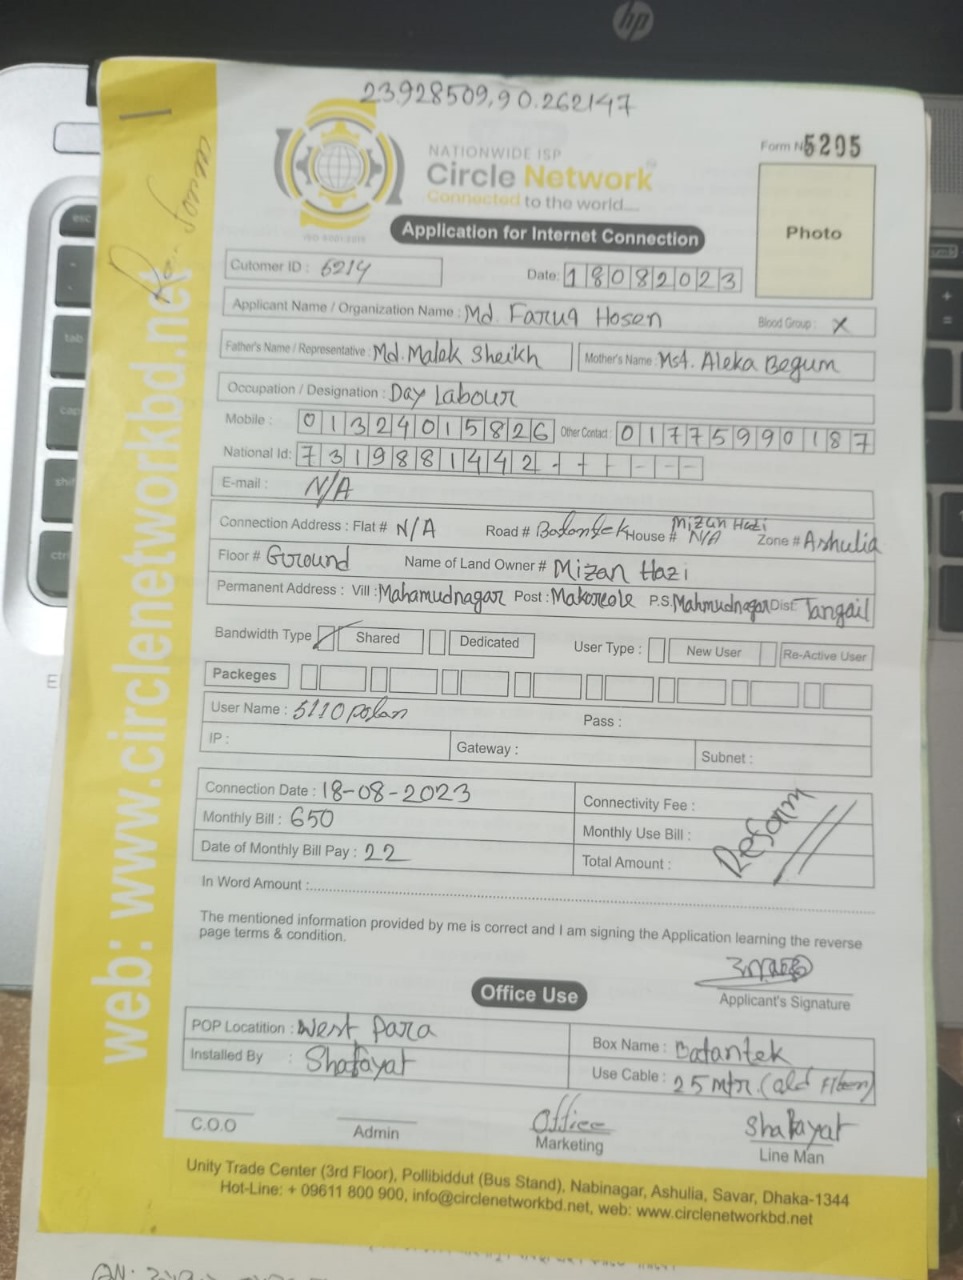 23.928509,90.262147
NATIONWIDE ISP
Circle Network
Connected to the world....
Form N 5205
Photo
Application for Internet Connection
Cutomer ID : 6214
Date: 18082023
Applicant Name / Organization Name : Md. Faruq Hosen Blood Group : X
Father's Name / Representative : Md. Malek Sheikh Mother's Name : Mst. Aleka Begum
Occupation / Designation : Day Labour
Mobile : 01324015826 Other Contact : 01775990187
National Id: 7319881442 - - - - - -
E-mail : N/A
Connection Address : Flat # N/A Road # House # Mizan Hazi N/A Zone # Ashulia
Floor # Ground Name of Land Owner # Mizan Hazi
Permanent Address : Vill : Mahamudnagar Post : Makorcole P.S. Mahmudnagar Dist: Tangail
Bandwidth Type Shared Dedicated User Type : New User Re-Active User
Packeges
User Name : Pass :
IP : Gateway : Subnet :
Connection Date : 18-08-2023 Connectivity Fee :
Monthly Bill : 650 Monthly Use Bill :
Date of Monthly Bill Pay : 22 Total Amount :
Reform
In Word Amount :
The mentioned information provided by me is correct and I am signing the Application learning the reverse
page terms & condition.
Applicant's Signature
Office Use
POP Locatition : West para Box Name : Batantek
Installed By : Shafayat Use Cable : 25 mtr. (old Fiber)
C.O.O Admin Office Marketing Shafayat Line Man
Unity Trade Center (3rd Floor), Pollibiddut (Bus Stand), Nabinagar, Ashulia, Savar, Dhaka-1344
Hot-Line: + 09611 800 900, info@circlenetworkbd.net, web: www.circlenetworkbd.net
web: www.circlenetworkbd.net
hp
esc
tab